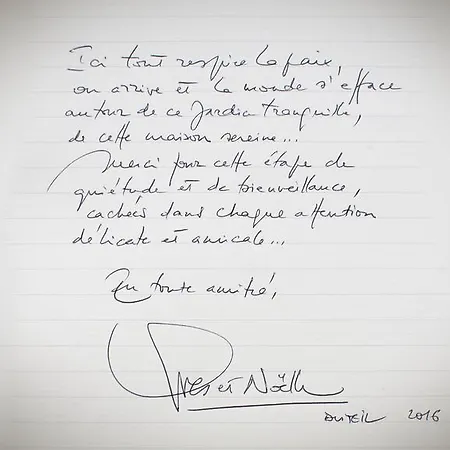 Ici tout respire la paix,
on arrive et le monde s'efface
autour de ce jardin tranquille,
de cette maison sereine...
Merci pour cette étape de
quiétude et de bienveillance,
cachées dans chaque attention
délicate et amicale...
En toute amitié,
Yves et Noëlle
2016